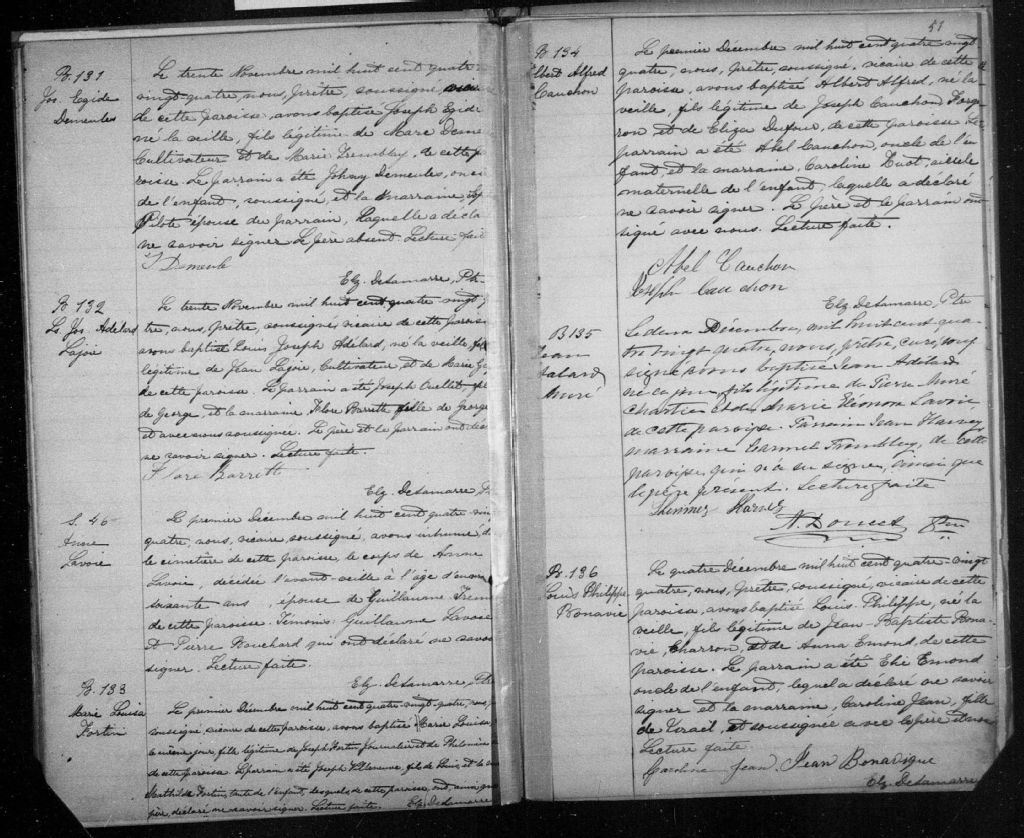 B. 131
Jos. Egide
Demeules
Le trente Novembre mil huit cent quatre
vingt-quatre, nous, prêtre, soussigné, vicaire
de cette paroisse, avons baptisé Joseph Egide
né la veille, fils légitime de Mars Deme
Cultivateur et de Marie Tremblay, de cette p
roisse. Le parrain a été Johny Demeules, oncl
de l'enfant, soussigné, et la marraine,
Pilote épouse du parrain, laquelle a décla
ne savoir signer. Le père absent. Lecture fait
J Demeule
Elz. DeLamarre, Ptr
B 132
Ls Jos. Adelard
Lajoie
Le trente Novembre mil huit cent quatre vingt,
tre, nous, prêtre, soussigné, vicaire de cette parois
avons baptisé Louis Joseph Adelard, né la veille, fils
légitime de Jean Lajoie, Cultivateur, et de Marie
de cette paroisse. Le parrain a été Joseph Ouellet
de George, et la marraine Flore Barrette fille de George
et avec nous soussignée. Le père et le parrain ont déc
ne savoir signer. Lecture faite.
Flore Barrett
Elz. DeLamarre, P
S. 46
Anne
Lavoie
Le premier Décembre mil huit cent quatre vin
quatre, nous, vicaire, soussigné, avons inhumé, d
le cimetière de cette paroisse, le corps de Anne
Lavoie, décédée l'avant-veille à l'âge d'environ
soixante ans, épouse de Guillaume Trem
de cette paroisse. Témoins: Guillaume Lavoie
et Pierre Bouchard qui ont déclaré ne savoi
signer. Lecture faite.
Elz. DeLamarre, Ptr
B. 133
Marie Louisa
Fortin
Le premier Décembre mil huit cent quatre vingt-quatre, nous,
soussigné, vicaire de cette paroisse, avons baptisé Marie Louisa
le même jour, fille légitime de Joseph Fortin Journalier et de Philomène
de cette paroisse. Le parrain a été Joseph Villeneuve, fils de Louis, et la
Mathilde Fortin, tante de l'enfant, lesquels de cette paroisse, ont, ainsi que
père, déclaré ne savoir signer. Lecture faite. Elz. DeLamarre
51
B 134
Albert Alfred
Cauchon
Le premier Décembre mil huit cent quatre vingt
quatre, nous, prêtre, soussigné, vicaire de cette
paroisse, avons baptisé Albert Alfred, né la
veille, fils légitime de Joseph Cauchon Forge
ron et de Eliza Dufour, de cette paroisse Le
parrain a été Abel Cauchon, oncle de l'en
fant, et la marraine, Caroline, aïeule
maternelle de l'enfant, laquelle a déclaré
ne savoir signer. Le père et le parrain ont
signé avec nous. Lecture faite.
Abel Cauchon
Joseph Cauchon
Elz DeLamarre, Ptre
B 135
Jean
Adelard
Muré
Le deux Décembre, mil huit cent qua
tre vingt quatre, nous, prêtre, curé, sous
signé avons baptisé Jean Adelard
né ce jour fils légitime de Pierre Muré
Charretier et de Marie Eléonore Lavoie
de cette paroisse. Parrain Jean Harvey
marraine Tremblay, de cette
paroisse, qui n'a su signer, ainsi que
le père présent. Lecture faite
Harvey
N. Doucet Ptre
B. 136
Louis Philippe
Bonavie
Le quatre Decembre mil huit cent quatre-vingt
quatre, nous, prêtre, soussigné, vicaire de cette
paroisse, avons baptisé Louis-Philippe, né la
veille, fils légitime de Jean-Baptiste Bona-
vie, Charron, et de Anna Emond, de cette
paroisse. Le parrain a été Elie Emond
oncle de l'enfant, lequel a déclaré ne savoir
signer, et la marraine, Caroline Jean, fille
de Israël, et soussignée avec le père et nous
Lecture faite
Caroline Jean, Jean Bonavigue
Elz DeLamarre